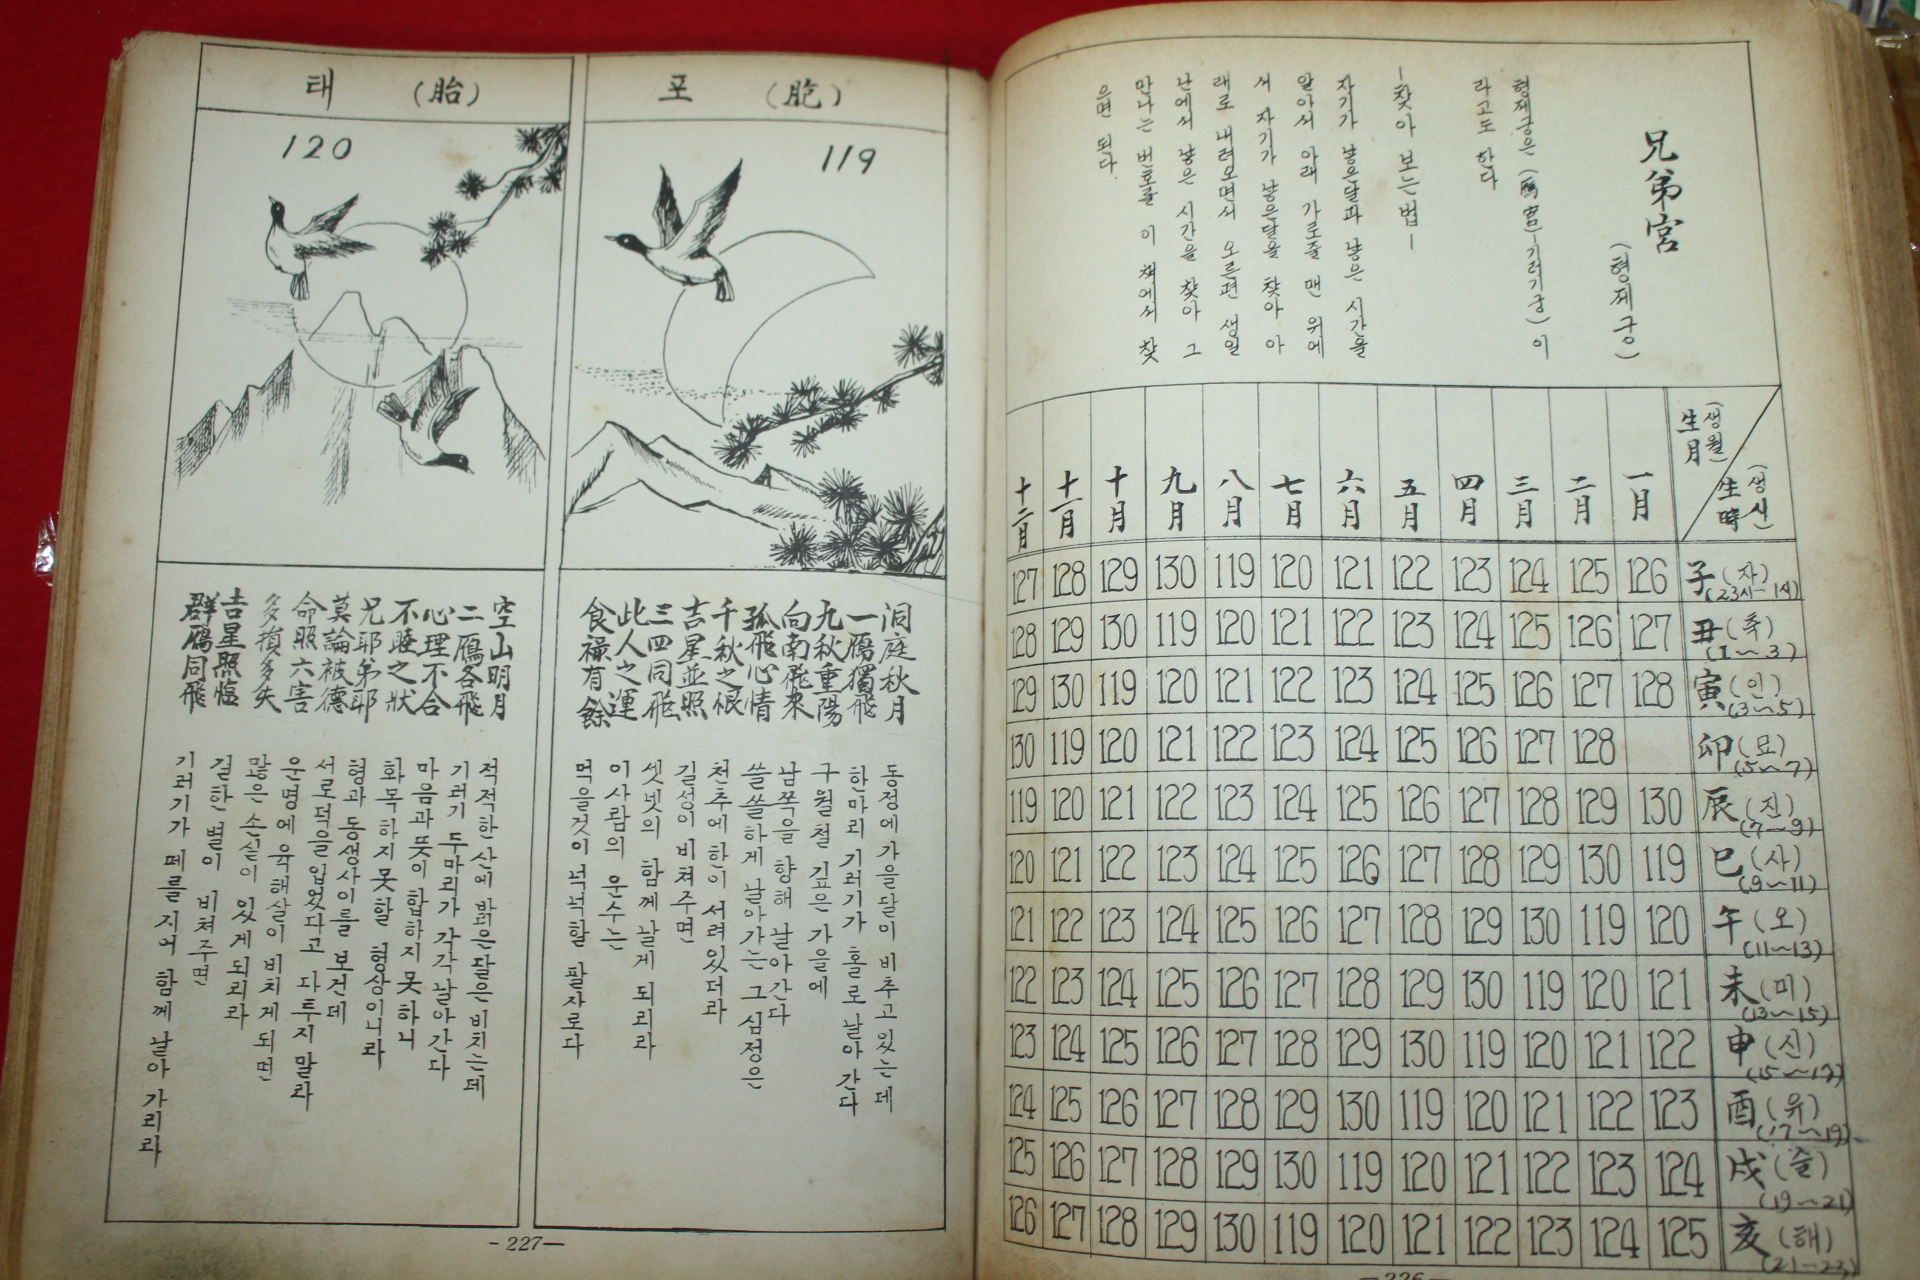 兄弟宮
(형제궁)
형제궁은 (鴈宮—기러기궁)이
라고도 한다
—찾아 보는 법—
자기가 낳은달과 낳은 시간을
알아서 아래 가로줄 맨 위에
서 자기가 낳은달을 찾아 아
래로 내려오면서 오른편 생일
난에서 낳은 시간을 찾아 그
만나는 번호를 이 책에서 찾
으면 된다.
生月 (생월) 生時 (생시)
一月 二月 三月 四月 五月 六月 七月 八月 九月 十月 十一月 十二月
子(자) (23시~1시) 126 125 124 123 122 121 120 119 130 129 128 127
丑(축) (1~3) 127 126 125 124 123 122 121 120 119 130 129 128
寅(인) (3~5) 128 127 126 125 124 123 122 121 120 119 130 129
卯(묘) (5~7) 128 127 126 125 124 123 122 121 120 119 130
辰(진) (7~9) 130 129 128 127 126 125 124 123 122 121 120 119
巳(사) (9~11) 119 130 129 128 127 126 125 124 123 122 121 120
午(오) (11~13) 120 119 130 129 128 127 126 125 124 123 122 121
未(미) (13~15) 121 120 119 130 129 128 127 126 125 124 123 122
申(신) (15~17) 122 121 120 119 130 129 128 127 126 125 124 123
酉(유) (17~19) 123 122 121 120 119 130 129 128 127 126 125 124
戌(술) (19~21) 124 123 122 121 120 119 130 129 128 127 126 125
亥(해) (21~23) 125 124 123 122 121 120 119 130 129 128 127 126
—226—
포 (胞)
119
洞庭秋月
一鴈獨飛
九秋重陽
向南飛來
孤飛心情
千秋之恨
吉星並照
三四同飛
此人之運
食祿有餘
동정에 가을달이 비추고 있는데
한마리 기러기가 홀로 날아 간다
구월철 깊은 가을에
남쪽을 향해 날아간다
쓸쓸하게 날아가는 그 심정은
천추에 한이 서려있더라
길성이 비쳐주면
셋넷의 함께 날게 되리라
이사람의 운수는
먹을것이 넉넉할 팔자로다
태 (胎)
120
空山明月
二鴈各飛
心理不合
不睦之狀
兄耶弟耶
莫論被德
命照六害
多損多失
吉星照臨
群鴈同飛
적적한 산에 밝은달은 비치는데
기러기 두마리가 각각 날아간다
마음과 뜻이 합하지 못하니
화목하지 못할 형상이니라
형과 동생사이를 보건데
서로 덕을 입었다고 다투지 말라
운명에 육해살이 비치게 되면
많은 손실이 있게 되리라
길한 별이 비쳐주면
기러기가 떼를 지어 함께 날아 가리라
-227—